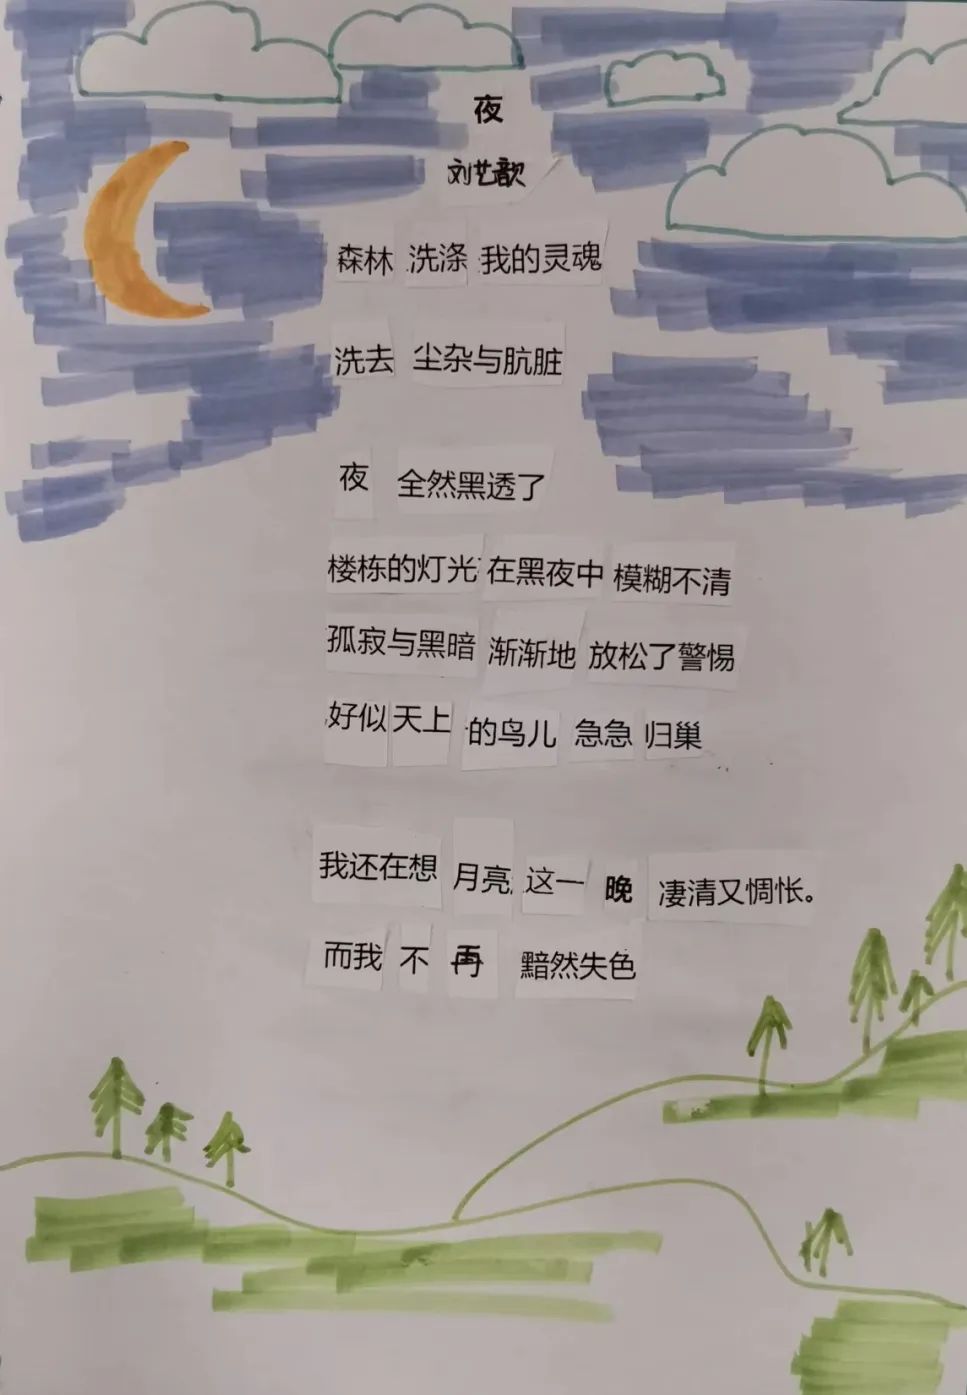 夜
刘艺歆
森林 洗涤 我的灵魂
洗去 尘杂与肮脏
夜 全然黑透了
楼栋的灯光 在黑夜中 模糊不清
孤寂与黑暗 渐渐地 放松了警惕
好似 天上 的鸟儿 急急 归巢
我还在想 月亮 这一 晚 凄清又惆怅。
而我 不 再 黯然失色